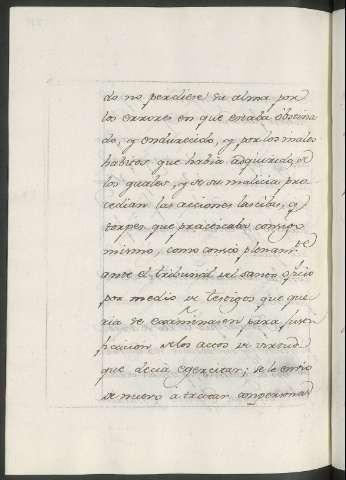 do no perdiese su alma por
los errores en que estaba obstina
do, y endurecido, y por los malos
habitos que habia adquirido, de
los quales, y de su malicia pro
cedian las acciones lascibas, y
torpes que practicaba consigo
mismo, como constó plenam.te
ante el tribunal del santo oficio
por medio de testigos que que
ria se examinasen para justi
ficacion de los actos de virtud
que decia egercitar; se le embio
de nuevo a tratar con personas